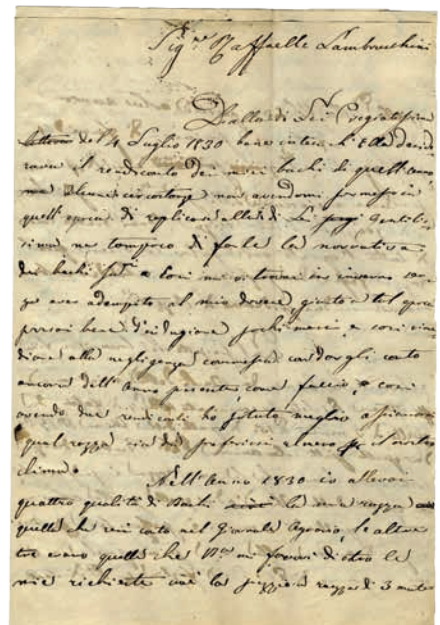 Sig.re Raffaelle Lambruschini
Dalla di Lei Pregiatissima
Lettera del 4 Luglio 1830 bene intesi ch'Ella deside
rava il rendiconto dei miei bachi di quest'anno
ma circostanze non avendomi permesso in
quell'epoca di replicare alla di Lei Gentilis
sima ne tampoco di farle la narrativa
dei bachi
aver adempito al mio dovere, giunto a tal epoca
pensai bene d'indugiare pochi mesi, e così rime
diare alla negligenza commessa con dargli conto
ancora dell'Anno presente, come faccio, e così
avendo due rendiconti ho potuto meglio
qual razza sia da preferirsi il nostro
clima.
Nell'Anno 1830 io allevai
quattro qualità di Bachi la mia razza
quella che resi conto nel Giornale Agrario, le altre
tre erano quelle che mi fornì dietro le
mie richieste la razza di 3 mute